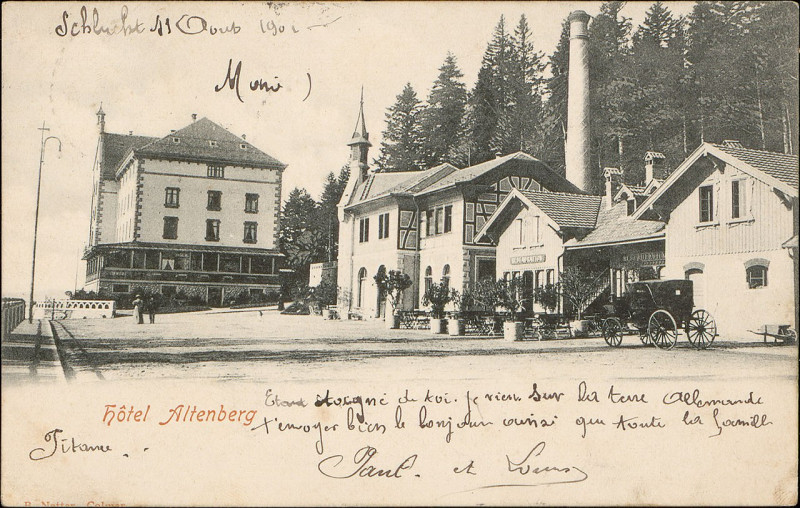 Schlucht 11 Août 1901
Hôtel Altenberg
Etant éloigné de toi. je viens sur la terre allemande
t'envoyer bien le bonjour ainsi que toute la famille
Titane . .
Paul. et Louis
B. Netter, Colmar
RESTAURATION